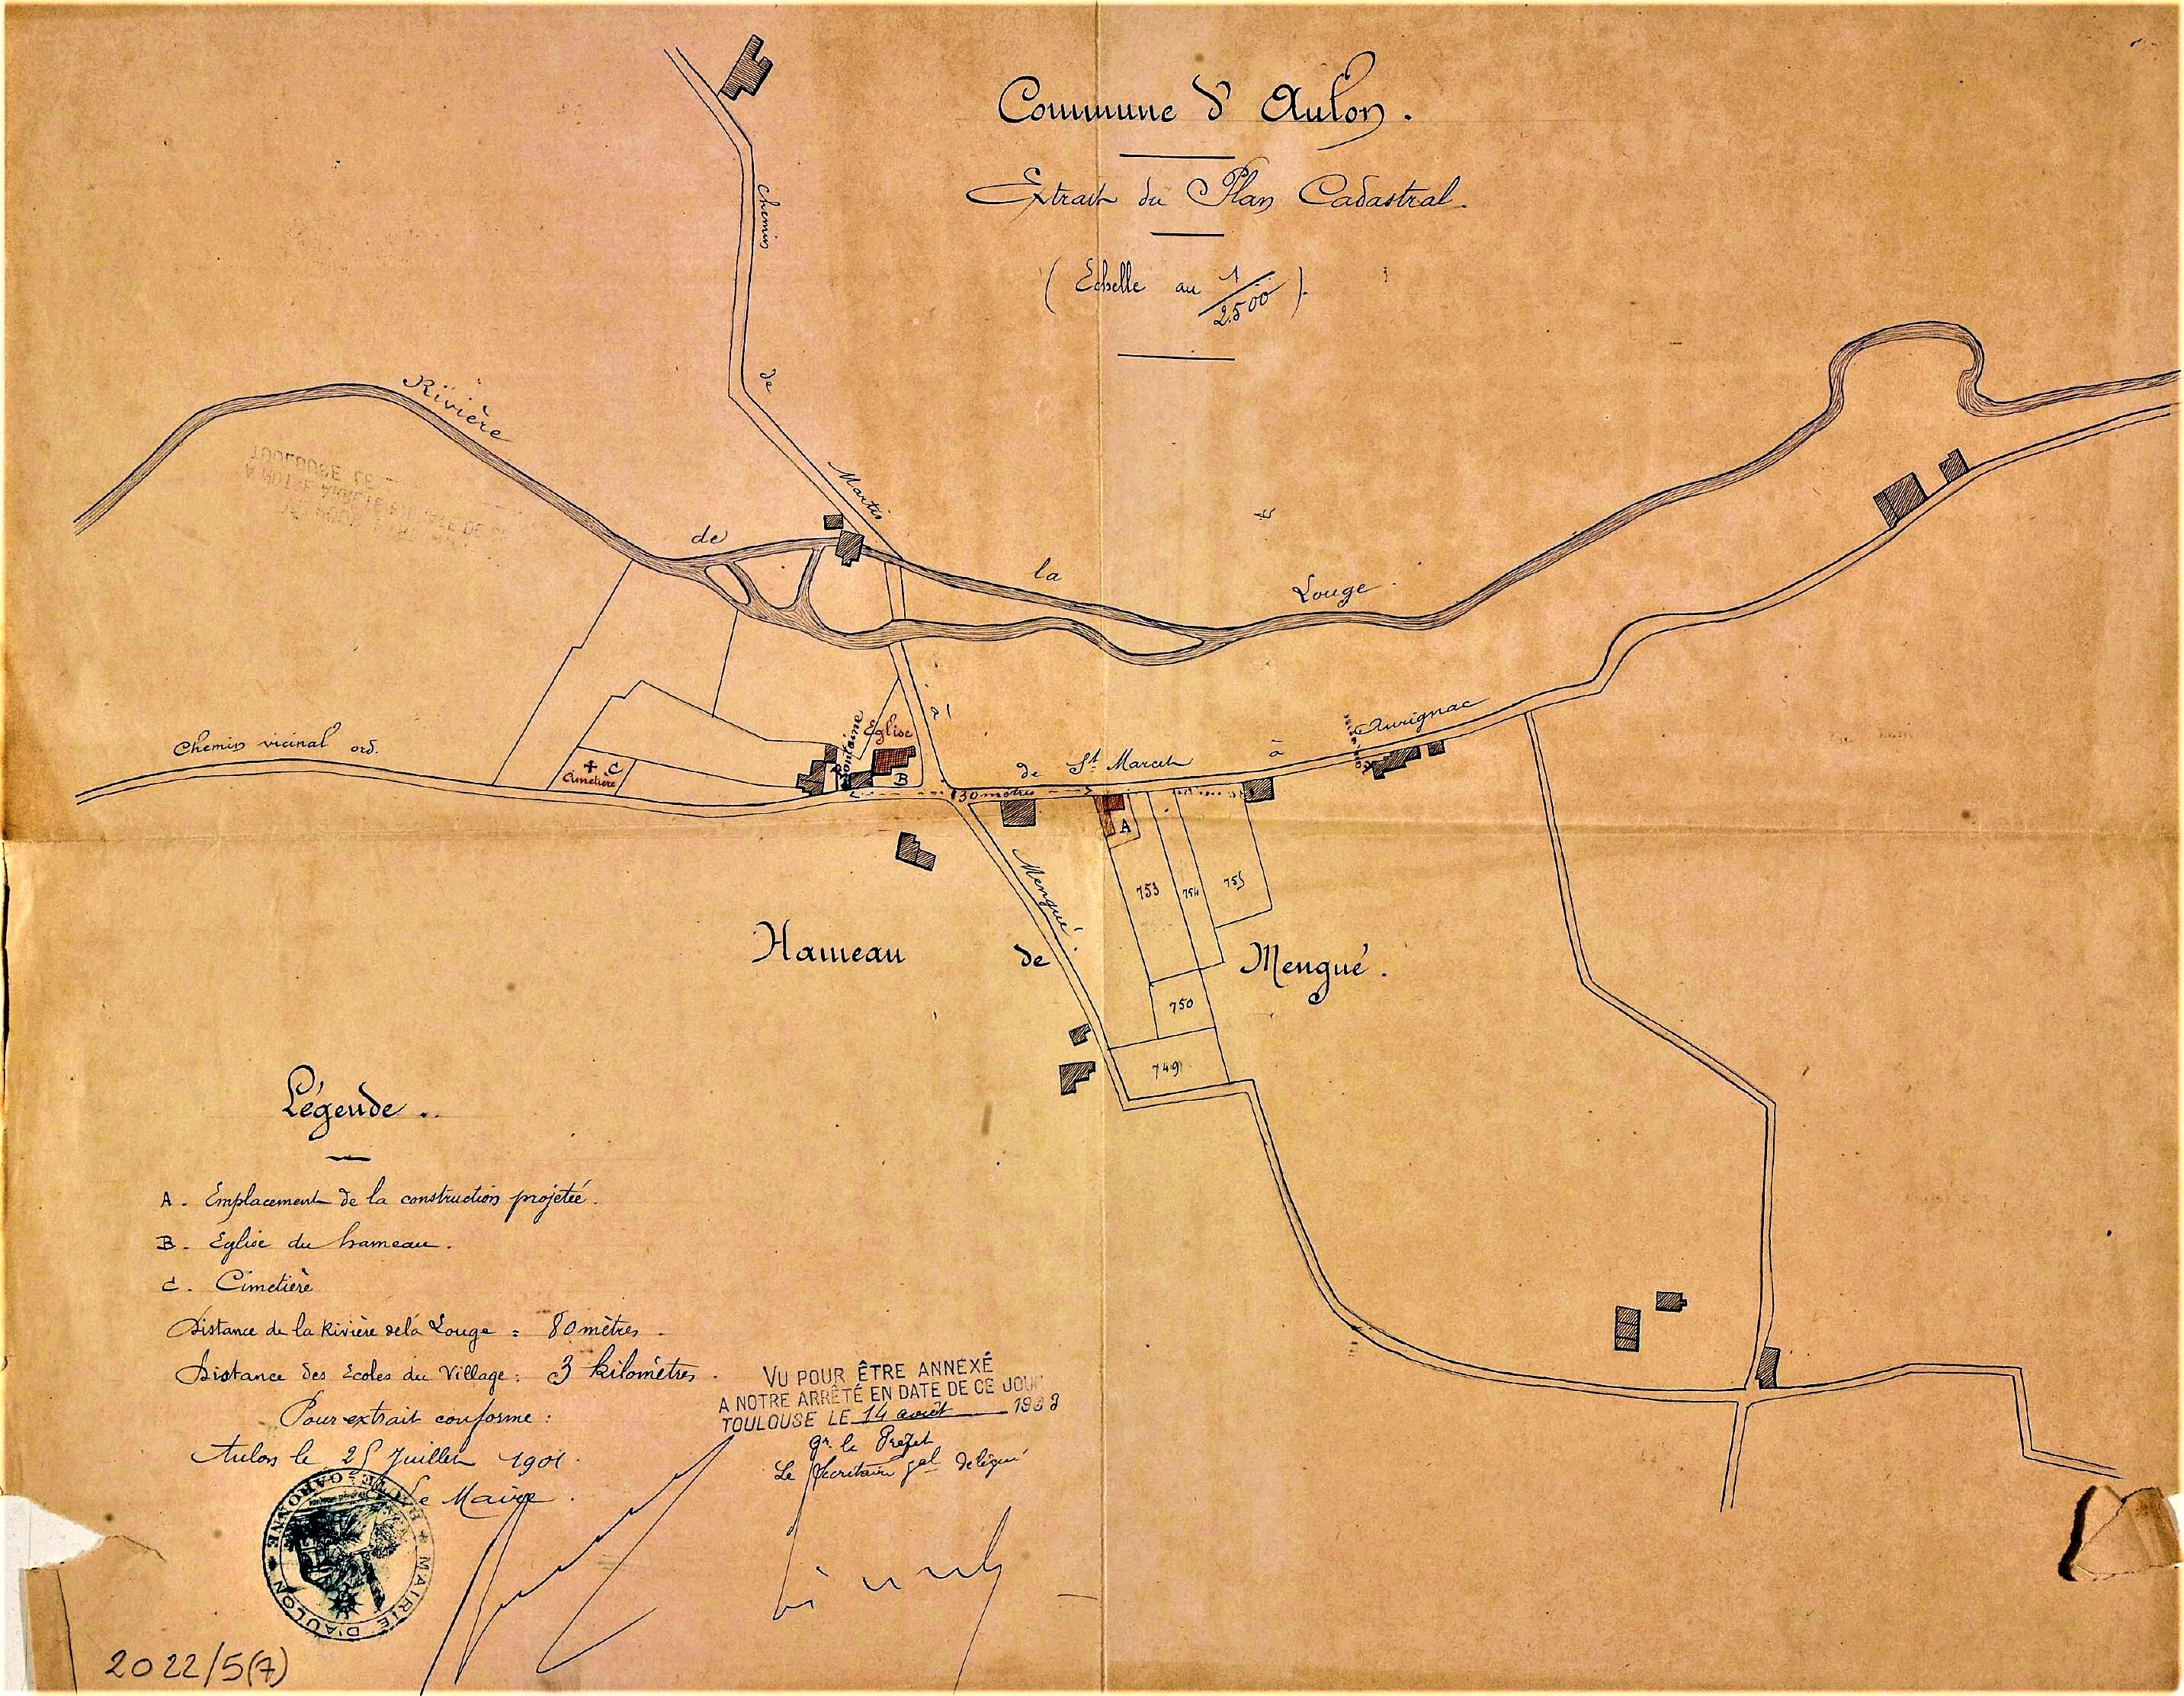 Commune d'Aulon.
Extrait du Plan Cadastral.
(Echelle au 1/2.500).
Chemin
de
Martis
à
Mengué.
Rivière
de
la
Louge
Chemin vicinal ord.
de St Marcet
à
Aurignac
Fontaine
Eglise
B
C
Cimetière
130 mètres
A
753
754
755
750
749
Hameau de Mengué.
Légende.
A. Emplacement de la construction projetée.
B. Eglise du hameau.
C. Cimetière
Distance de la Rivière de la Louge = 80 mètres.
Distance des Ecoles du Village: 3 kilomètres.
Pour extrait conforme:
Aulon le 25 Juillet 1901.
Le Maire.
MAIRIE D'AULON
HTE GARONNE
VU POUR ÊTRE ANNEXÉ
A NOTRE ARRÊTÉ EN DATE DE CE JOUR
TOULOUSE LE 14 août
Pr le Préfet
Le Secrétaire gal délégué
2022/5(7)